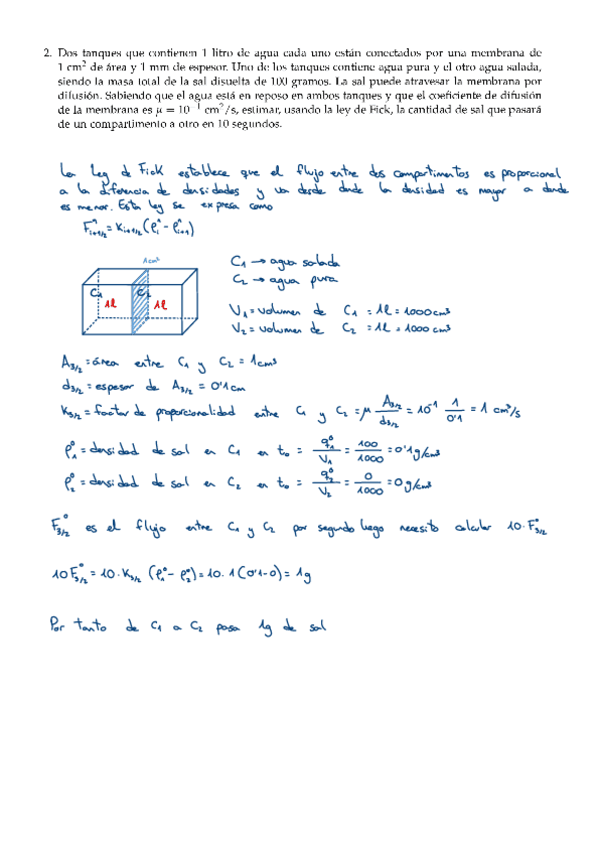 2. Dos tanques que contienen 1 litro de agua cada uno están conectados por una membrana de
1 cm² de área y 1 mm de espesor. Uno de los tanques contiene agua pura y el otro agua salada,
siendo la masa total de la sal disuelta de 100 gramos. La sal puede atravesar la membrana por
difusión. Sabiendo que el agua está en reposo en ambos tanques y que el coeficiente de difusión
de la membrana es μ = 10⁻¹ cm²/s, estimar, usando la ley de Fick, la cantidad de sal que pasará
de un compartimento a otro en 10 segundos.
La Ley de Fick establece que el flujo entre dos compartimentos es proporcional
a la diferencia de densidades y va desde donde la densidad es mayor a donde
es menor. Esta ley se expresa como
Fⁿᵢ₊₁/₂ = Kᵢ₊₁/₂ (ρⁿᵢ - ρⁿᵢ₊₁)
1cm²
C₁ C₂
1l 1l
C₁ → agua salada
C₂ → agua pura
V₁ = volumen de C₁ = 1l = 1000cm³
V₂ = volumen de C₂ = 1l = 1000cm³
A₃/₂ = área entre C₁ y C₂ = 1cm²
d₃/₂ = espesor de A₃/₂ = 0'1cm
K₃/₂ = factor de proporcionalidad entre C₁ y C₂ = μ A₃/₂ / d₃/₂ = 10⁻¹ 1/0'1 = 1 cm³/s
ρ₁⁰ = densidad de sal en C₁ en t₀ = q₁⁰/V₁ = 100/1000 = 0'1g/cm³
ρ₂⁰ = densidad de sal en C₂ en t₀ = q₂⁰/V₂ = 0/1000 = 0g/cm³
F₃/₂⁰ es el flujo entre C₁ y C₂ por segundo luego necesito calcular 10·F₃/₂⁰
10F₃/₂⁰ = 10·K₃/₂ (ρ₁⁰ - ρ₂⁰) = 10·1(0'1-0) = 1g
Por tanto de C₁ a C₂ pasa 1g de sal